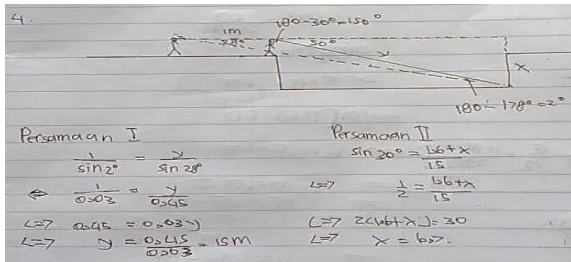 4.
180-30°=150°
1m
28°
30°
y
x
180-178°=2°
Persamaan I
1/sin2° = y/sin 28°
⇔ 1/0,03 = y/0,45
<=> 0,45 = 0,03y
<=> y = 0,45/0,03 = 15m
Persamaan II
sin 30° = 1,6+x/15
<=> 1/2 = 1,6+x/15
<=> 2(1,6+x) = 30
<=> x =